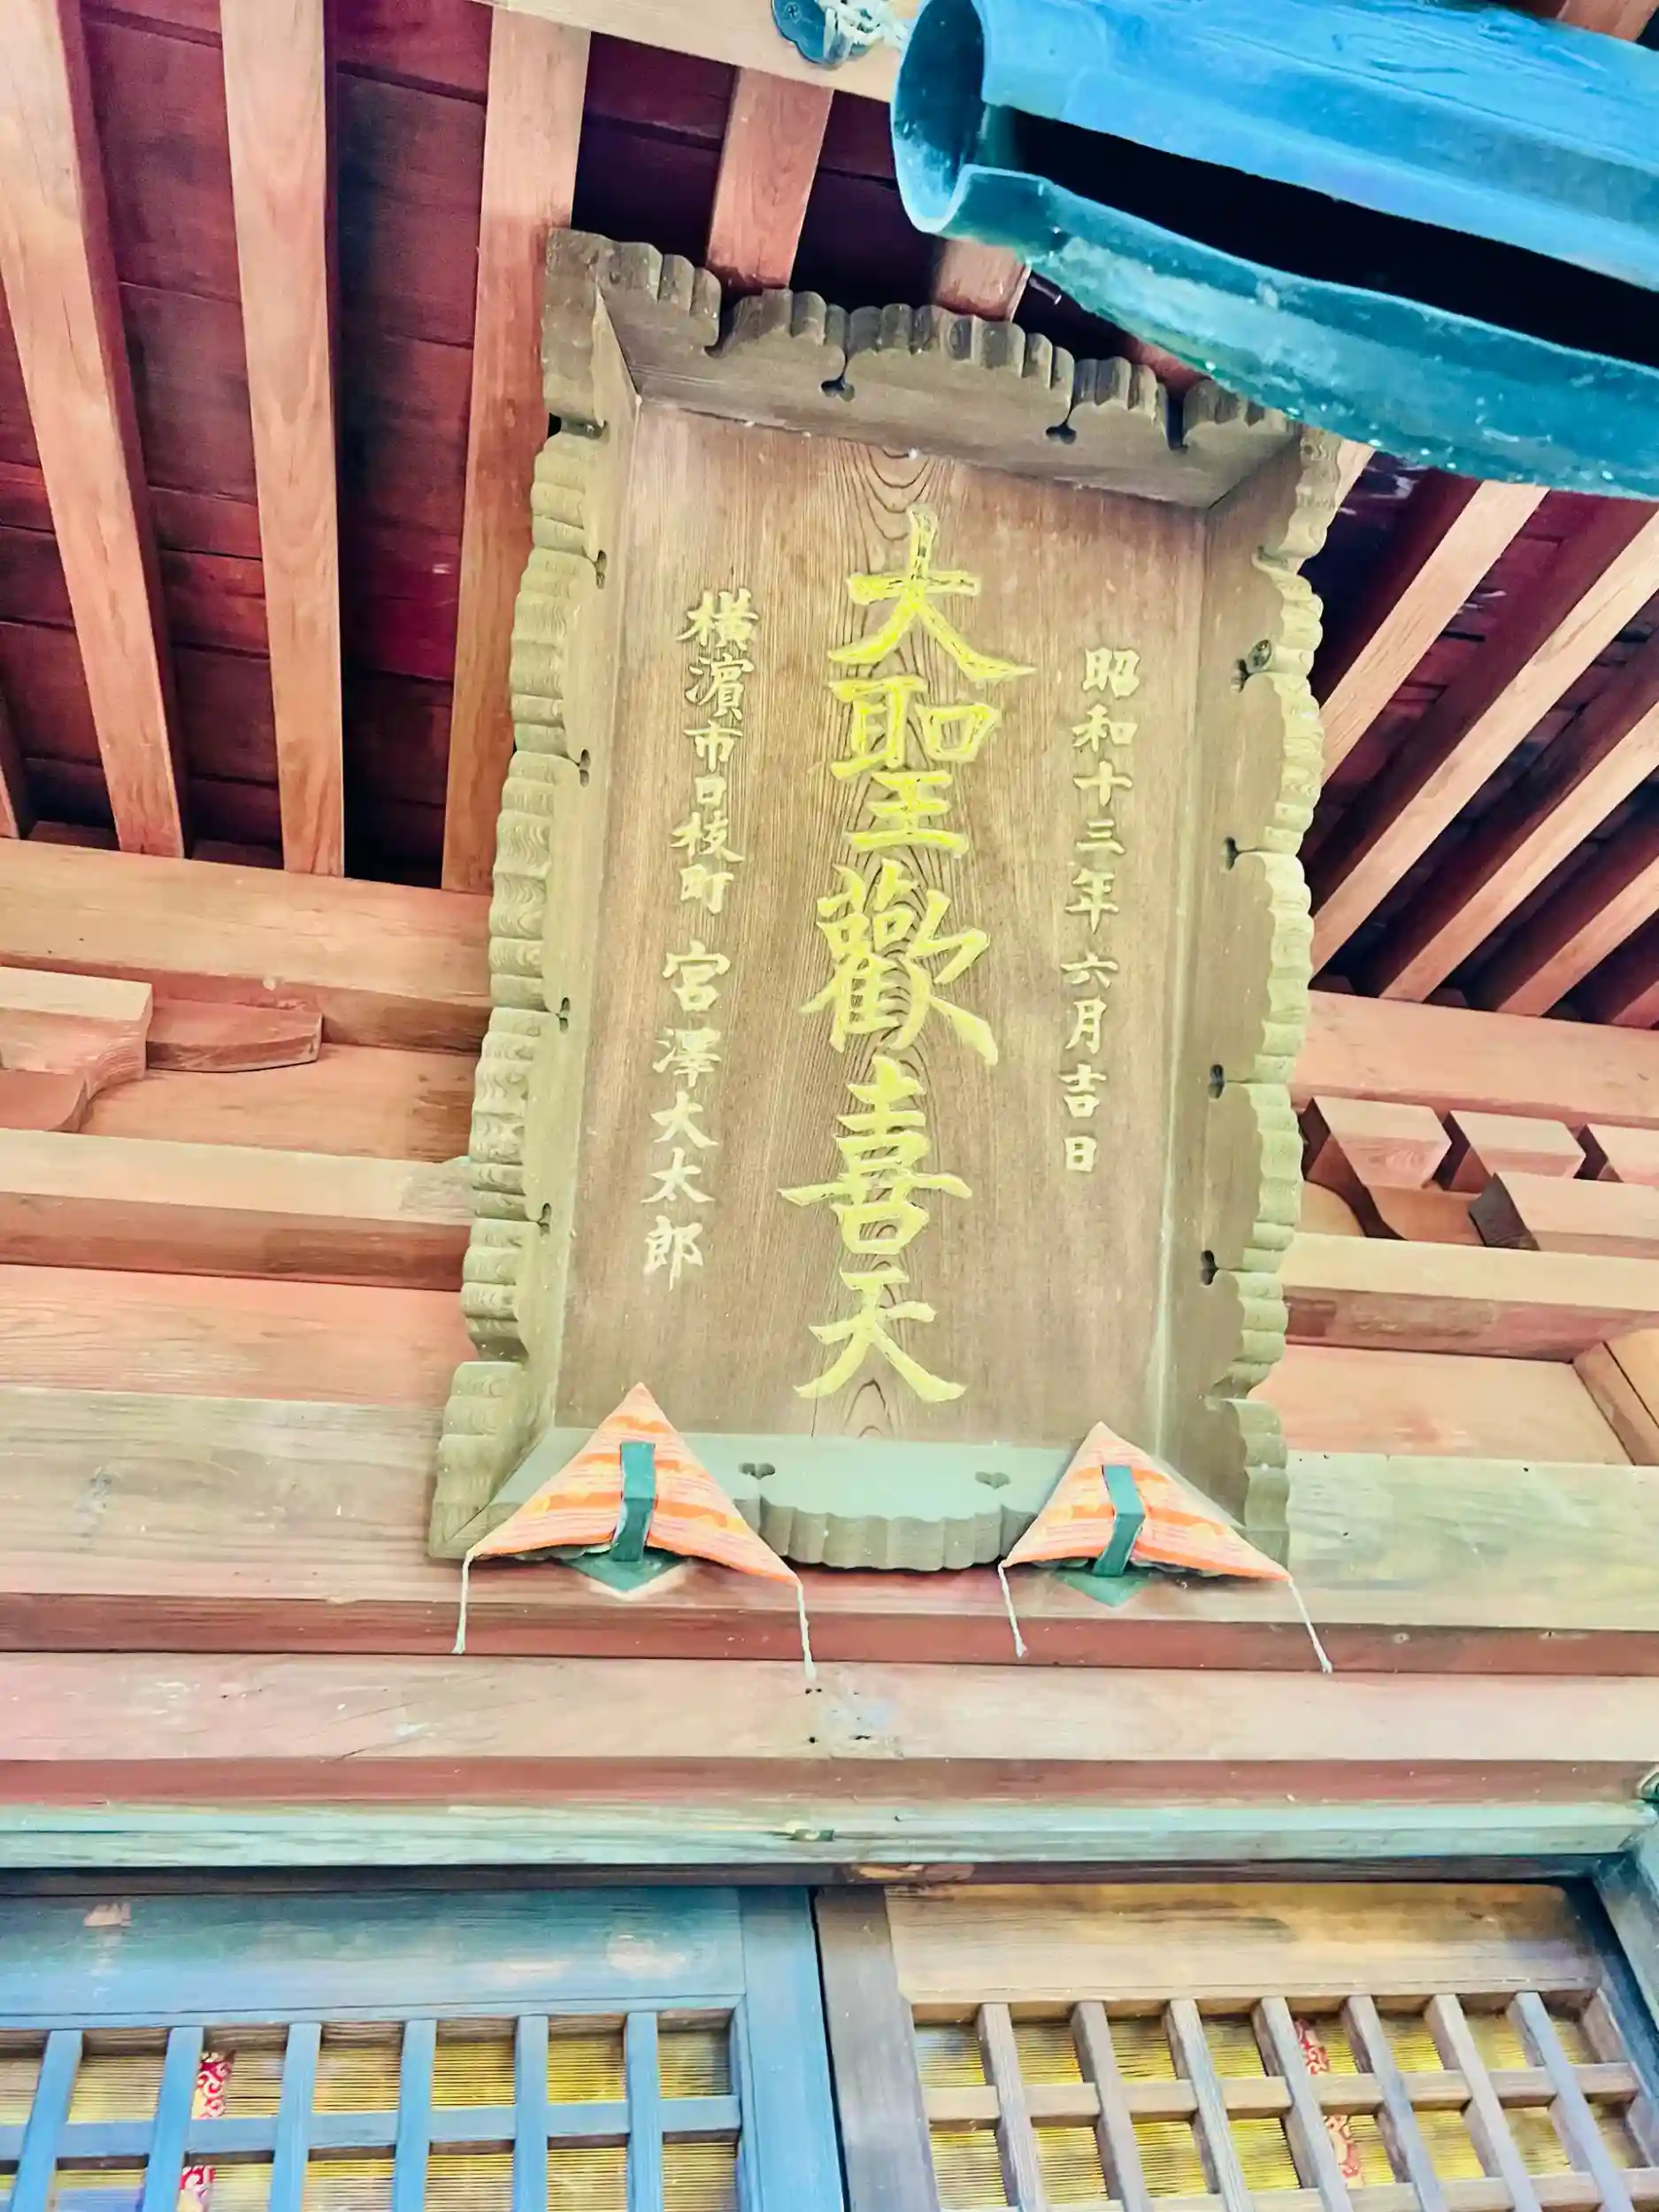 昭和十三年六月吉日
大聖歡喜天
横濵市日枝町 宮澤大太郎